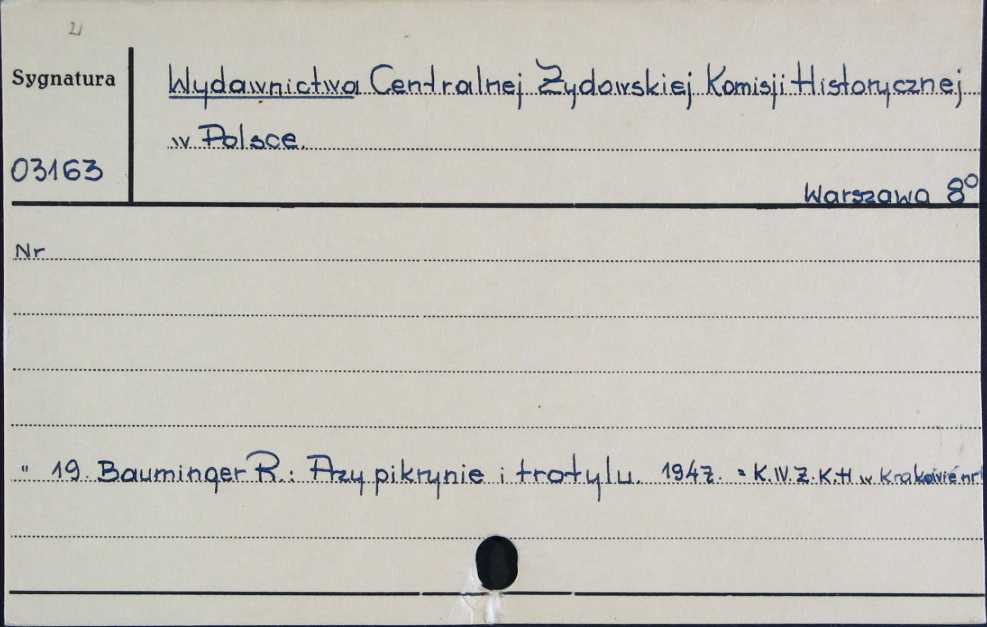 21
Sygnatura
Wydawnictwa Centralnej Żydowskiej Komisji Historycznej
w Polsce.
03163
Warszawa 8°
Nr
" 19. Bauminger R.: Przy pikrynie i trotylu. 1947. = K.W.Ż.K.H w Krakowie nr